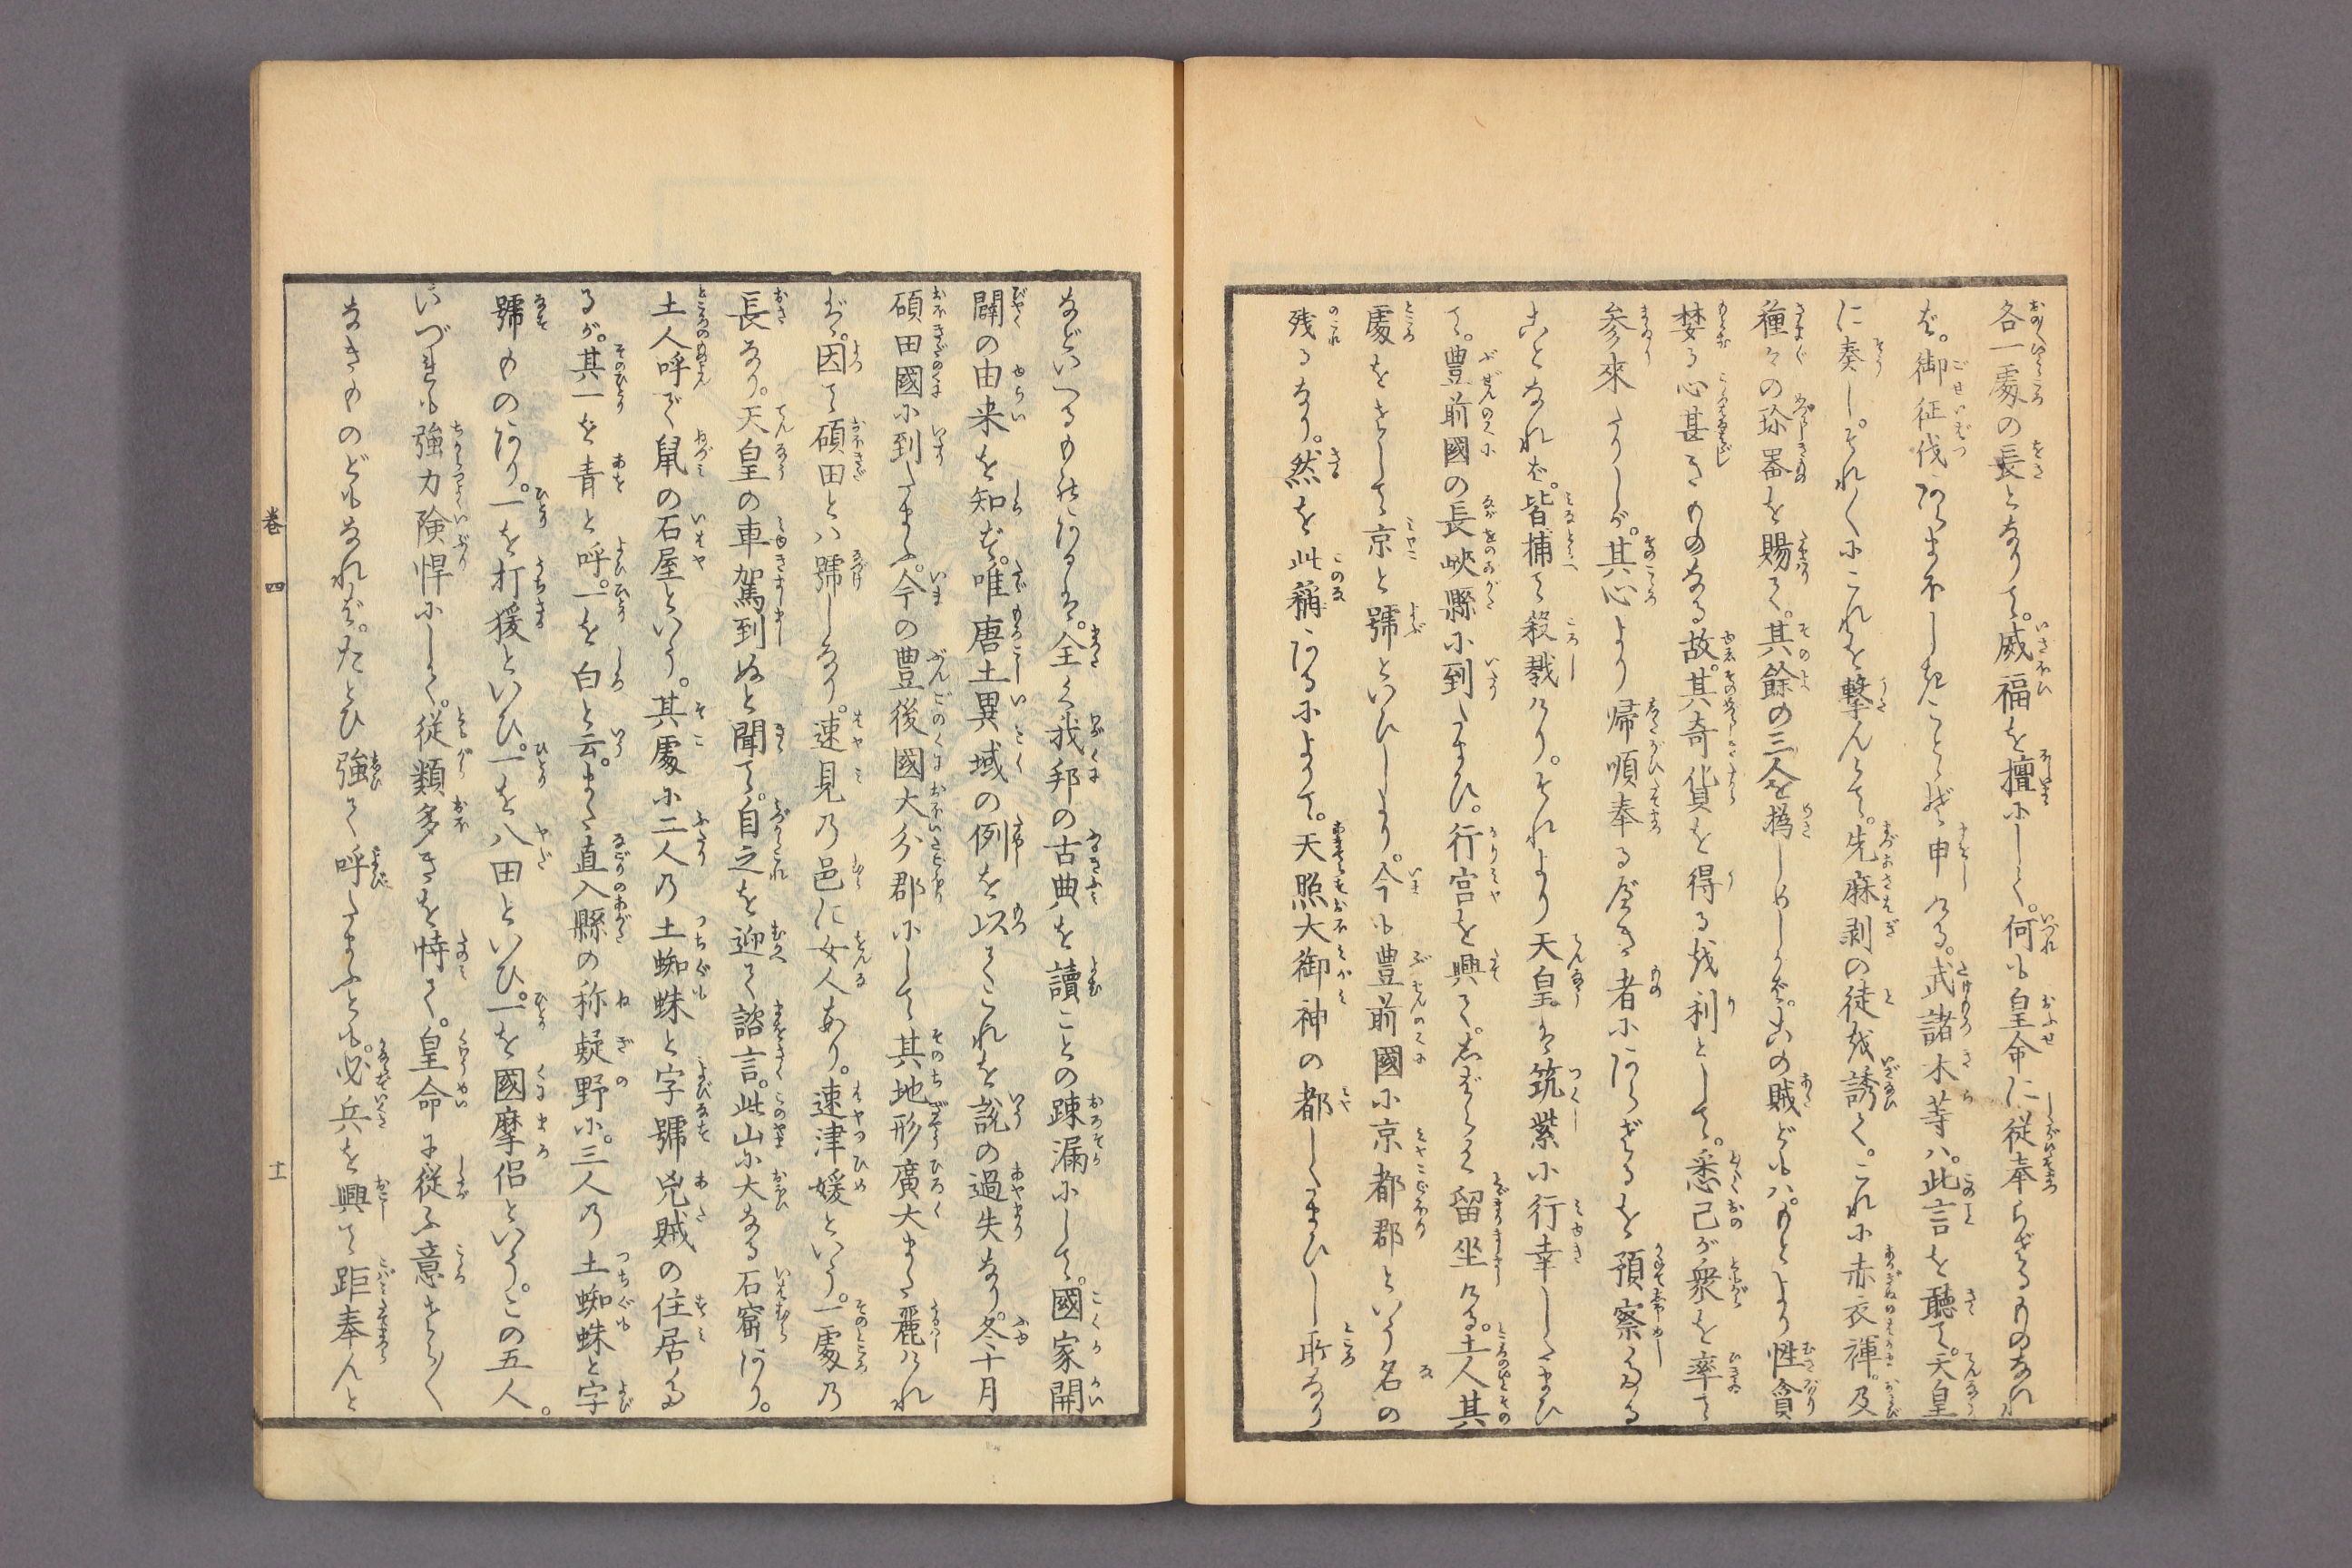 各一處の長となりて。威福を擅にして。何も皇命に従奉らざるものなれ
ば。御征伐あらまほしきことぞ申ける。武諸木等ハ。此言を聴て。天皇
に奏し。それ〱にこれを撃んとて。先麻剥の徒を誘て。これに赤衣褌。及
種々の珎器を賜て。其餘の三人を撝しめしかば。この賊どもハ。もとより性貪
婪る心甚きものなる故。其奇貨を得るを利として。悉己が衆を率て
参來たりしが。其心より帰順奉るべき者にあらざるを預察たる
ことなれば。皆捕て殺戮けり。それより天皇ハ筑紫に行幸したまひ
て。豊前國の長峡縣に到たまひ。行宮を興て。志ばらく留坐ける。土人其
處をさして京と號といひしより。今も豊前國に京都郡といふ名の
残るなり。然を此稱あるによりて。天照大御神の都したまひし所なり
などいへるものあるハ。全く我邦の古典を讀ことの踈漏にして。國家開
闢の由来を知ず。唯唐土異域の例を以てこれを説の過失なり。冬十月
碩田國に到たまふ。今の豊後國大分郡にして其地形廣大また麗けれ
ば。因て碩田とハ號しなり。速見乃邑に女人あり。速津媛といふ。一處乃
長なり。天皇の車駕到ぬと聞て。自之を迎て諮言。此山に大なる石窟あり。
土人呼で鼠の石屋といふ。其處に二人乃土蜘蛛と字號兇賊の住居た
るが。其一を青と呼。一を白と云。また直入縣の称疑野に。三人乃土蜘蛛と字
號ものあり。一を打猨といひ。一を八田といひ。一を國摩侶といふ。この五人。
いづれも強力険悍にして。従類多きを恃て。皇命に従ふ意さら〱
なきものどもなれば。たとひ強て呼たまふとも。必兵を興て距奉んと
巻四
十一